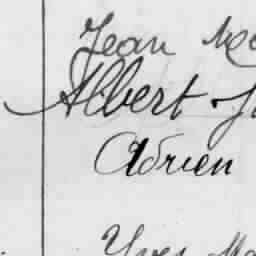 Jean
Albert
Adrien
Yves